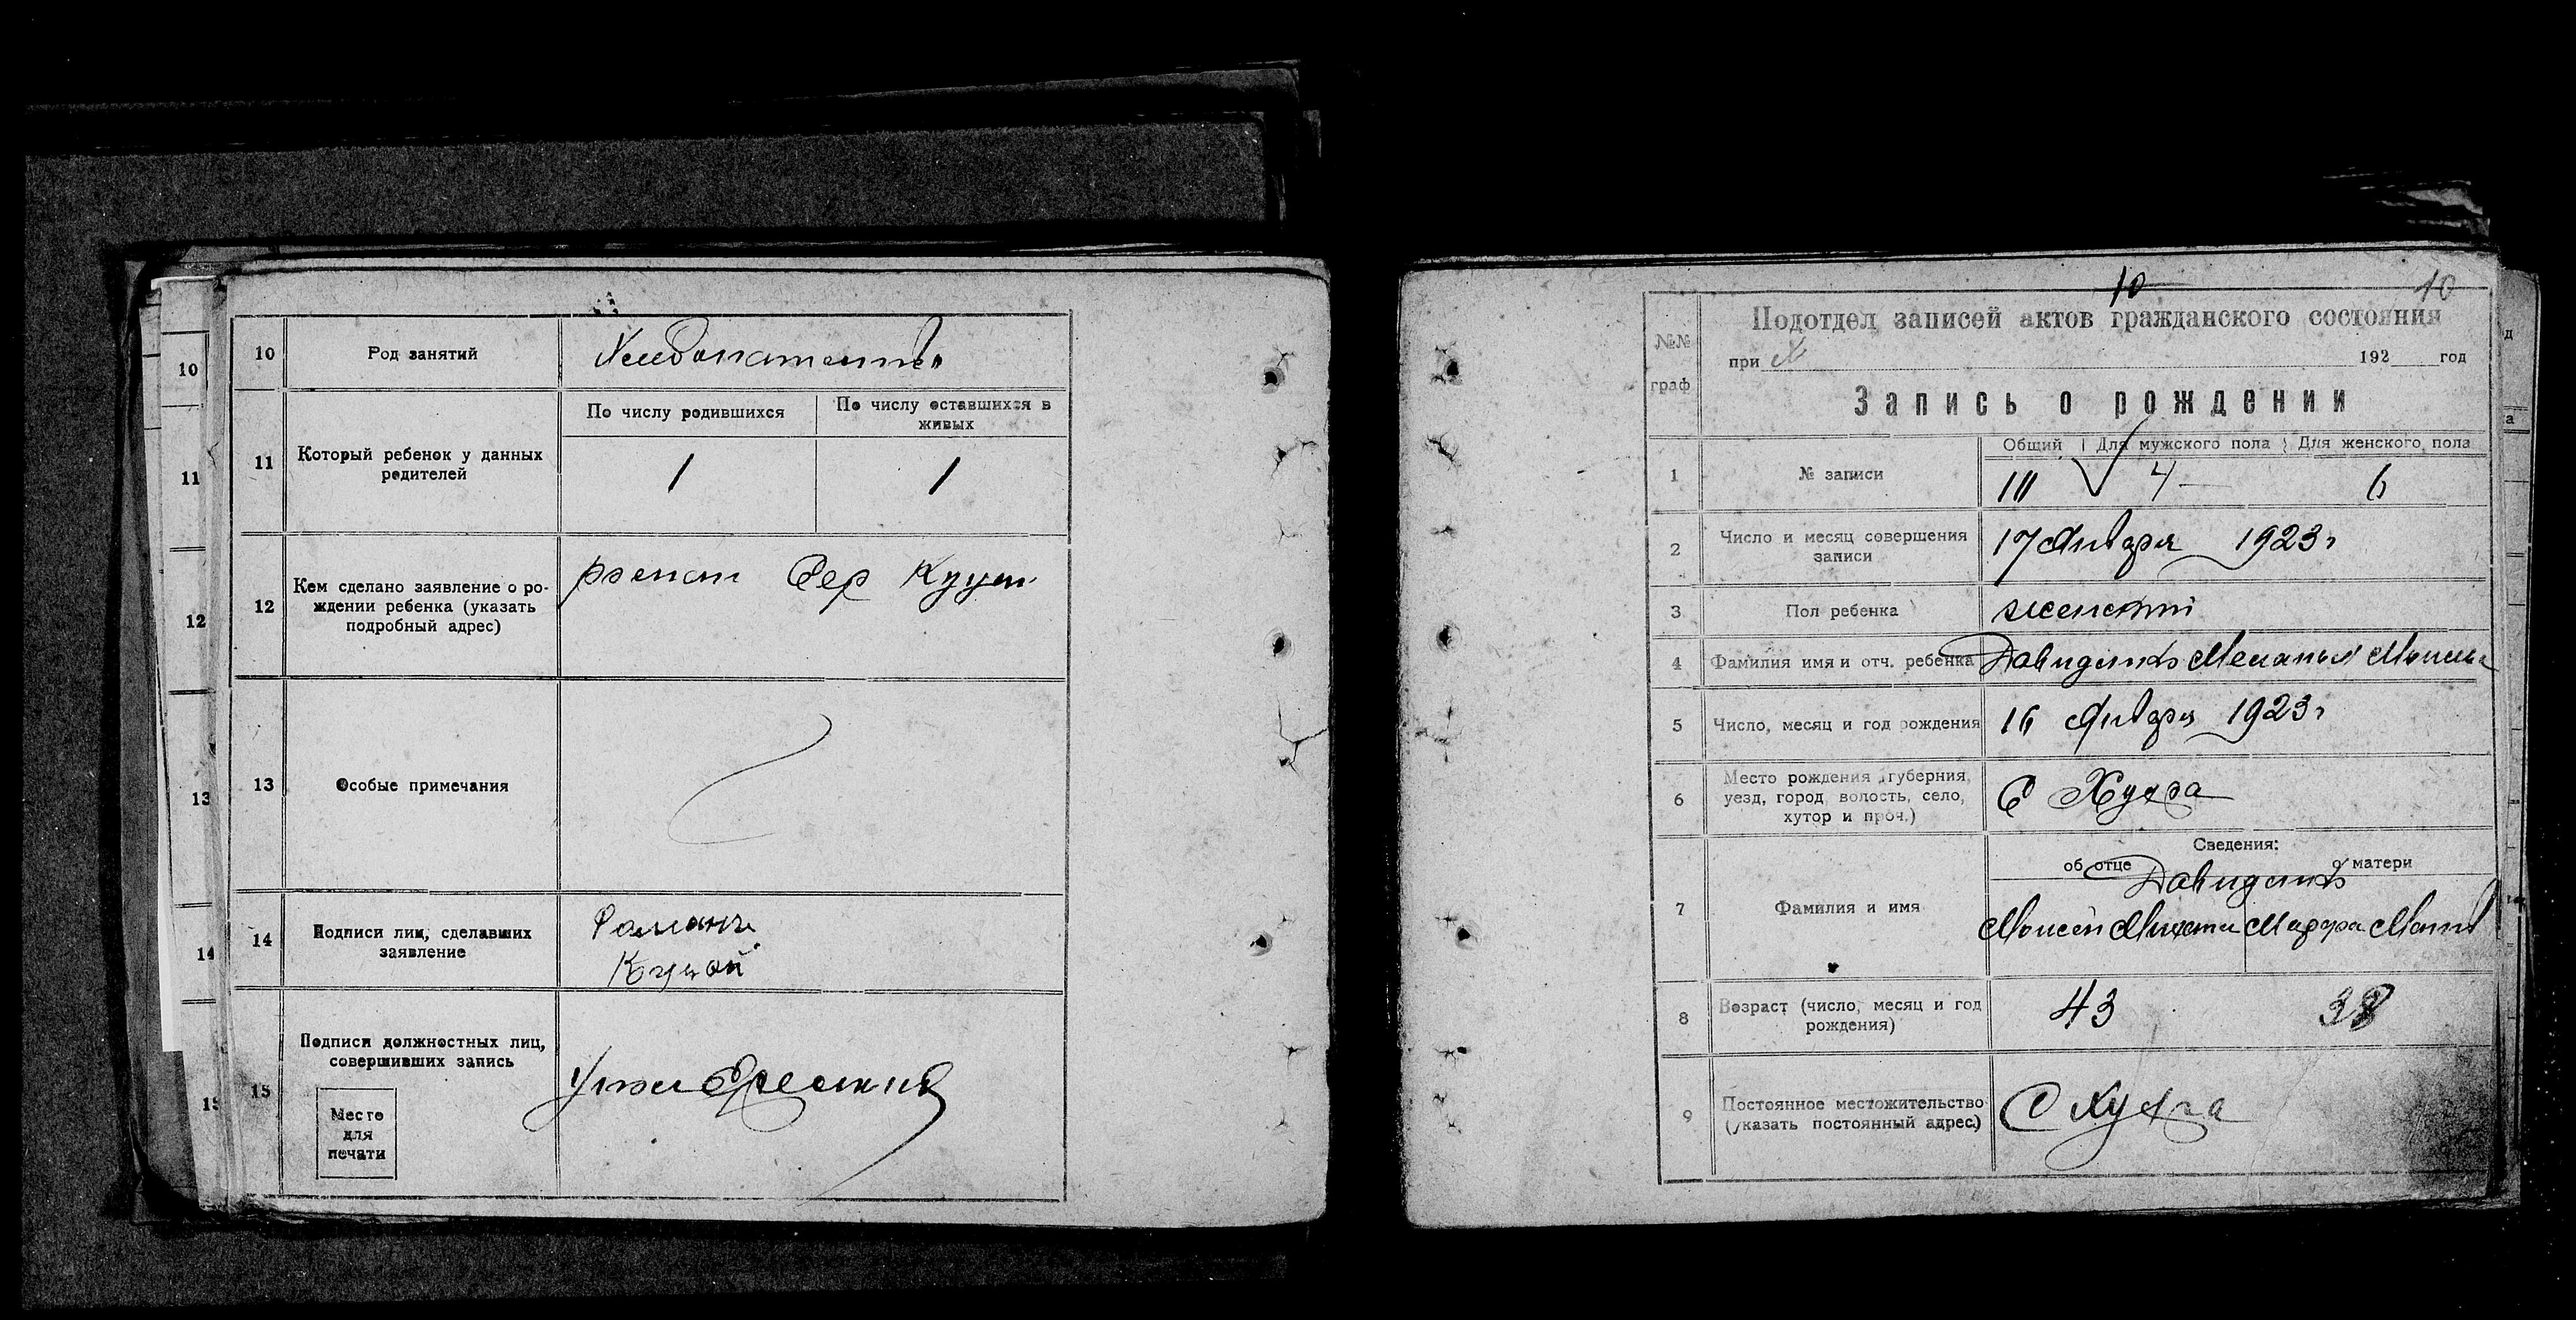 10
11
12
13
14
15
10
Род занятий
11
Который ребенок у данных
родителей
По числу родившихся
По числу оставшихся в
живых
1
1
12
Кем сделано заявление о ро-
ждении ребенка (указать
подробный адрес)
13
Особые примечания
14
Подписи лиц, сделавших
заявление
Романъ
Куцой
15
Подписи должностных лиц,
совершивших запись
Место
для
печати
10
10
№№
граф
Подотдел записей актов гражданского состояния
при
192 год
Запись о рождении
1
№ записи
Общий
Для мужского пола
Для женского пола
4
6
2
Число и месяц совершения
записи
17 Января 1923 г
3
Пол ребенка
женский
4
Фамилия имя и отч. ребенка
5
Число, месяц и год рождения
16 Января 1923 г
6
Место рождения (губерния,
уезд, город, волость, село,
хутор и проч.)
С
7
Фамилия и имя
Сведения:
об отце
о матери
Моисей
8
Возраст (число, месяц и год
рождения)
43
38
9
Постоянное местожительство
(указать постоянный адрес)
С